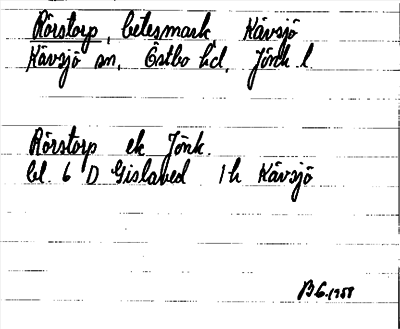 Rörstorp, betesmark, Kävsjö
Kävsjö sn, Östbo hd, Jönk l.
Rörstorp ek Jönk.
bl. 6 D Gislaved 1h Kävsjö
B.G. 1958